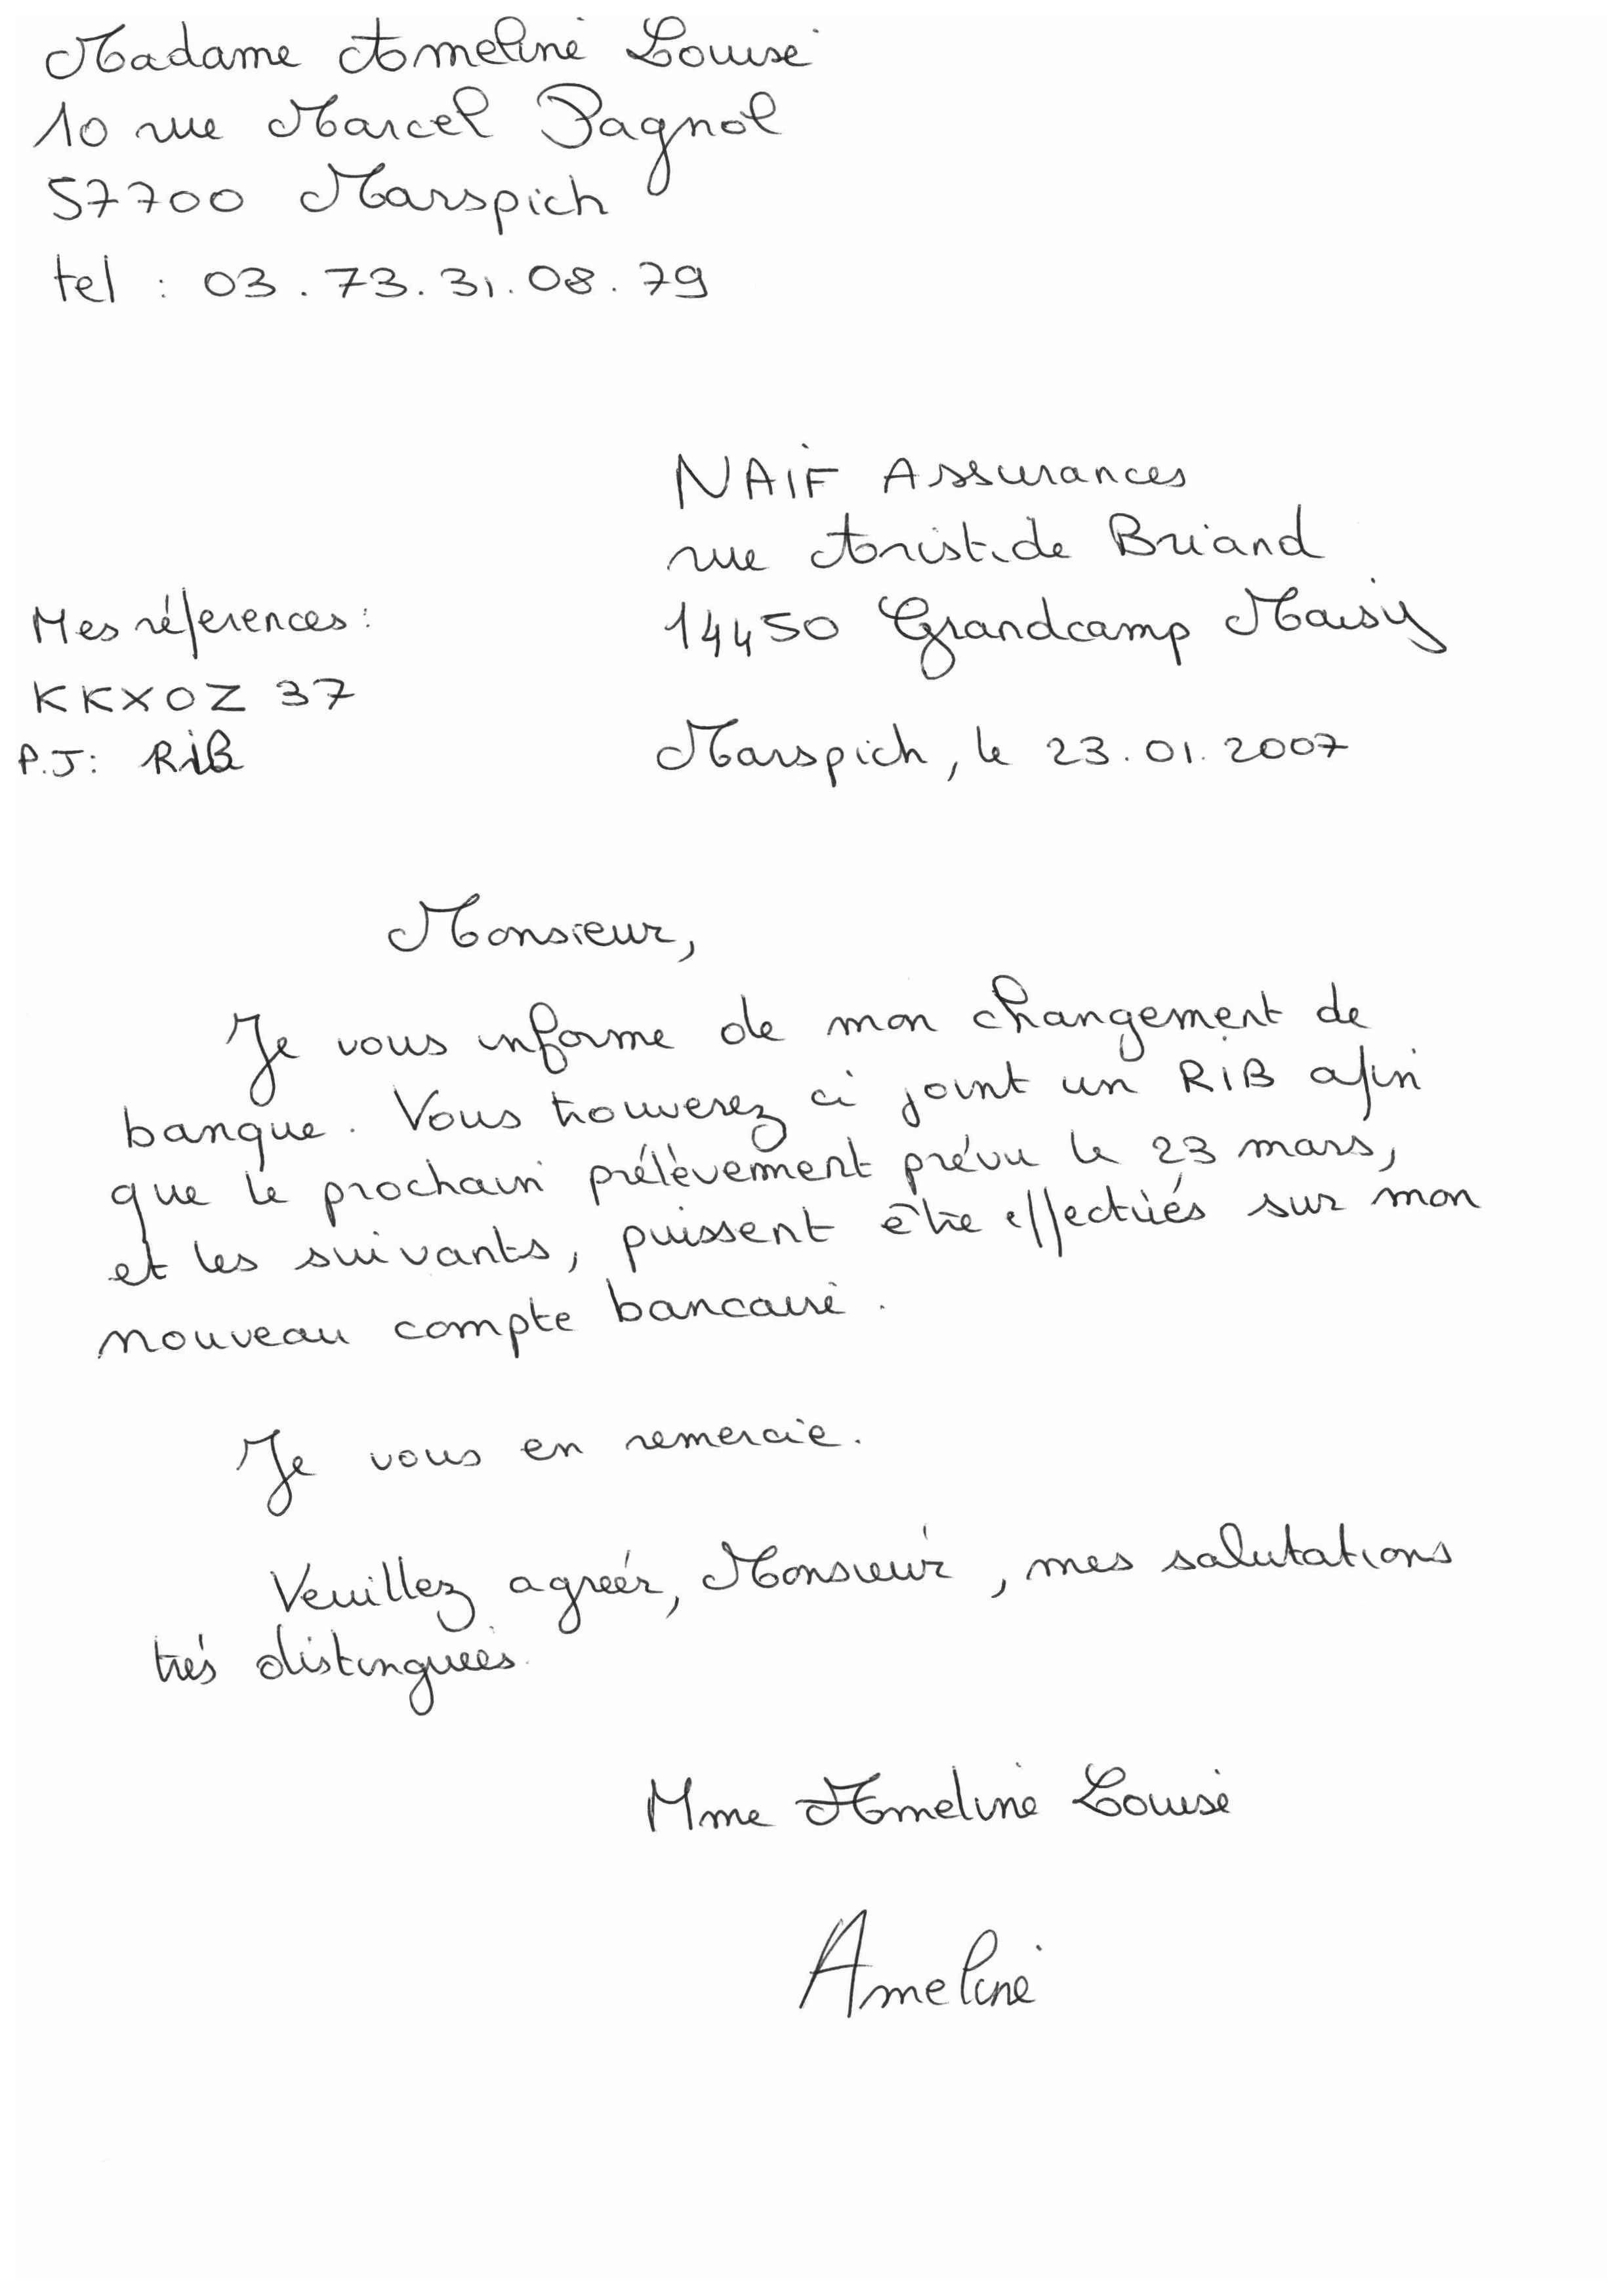 Madame Ameline Louise
10 rue Marcel Pagnol
57700 Marspich
tel : 03.73.31.08.79
NAIF Assurances
rue Aristide Briand
14450 Grandcamp Maisy
Mes réferences :
KKXOZ 37
P.J : RiB
Marspich, le 23.01.2007
Monsieur,
Je vous informe de mon changement de
banque. Vous trouverez ci joint un RIB afin
que le prochain prélèvement prévu le 23 mars,
et les suivants, puissent être effectués sur mon
nouveau compte bancaire.
Je vous en remercie.
Veuillez agréer, Monsieur, mes salutations
très distinguées.
Mme Ameline Louise
Ameline